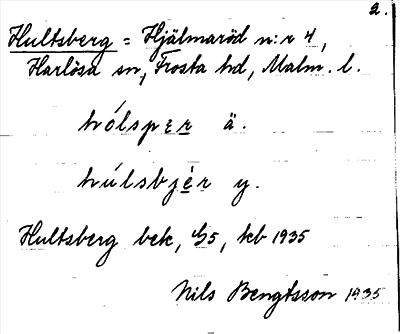 2.
Hultsberg = Hjälmaröd n:r 4,
Harlösa sn, Frosta hd, Malm. l.
hólspęr ä.
húlsbję́r y.
Hultsberg bek, 45, kb 1935
Nils Bengtsson 1935